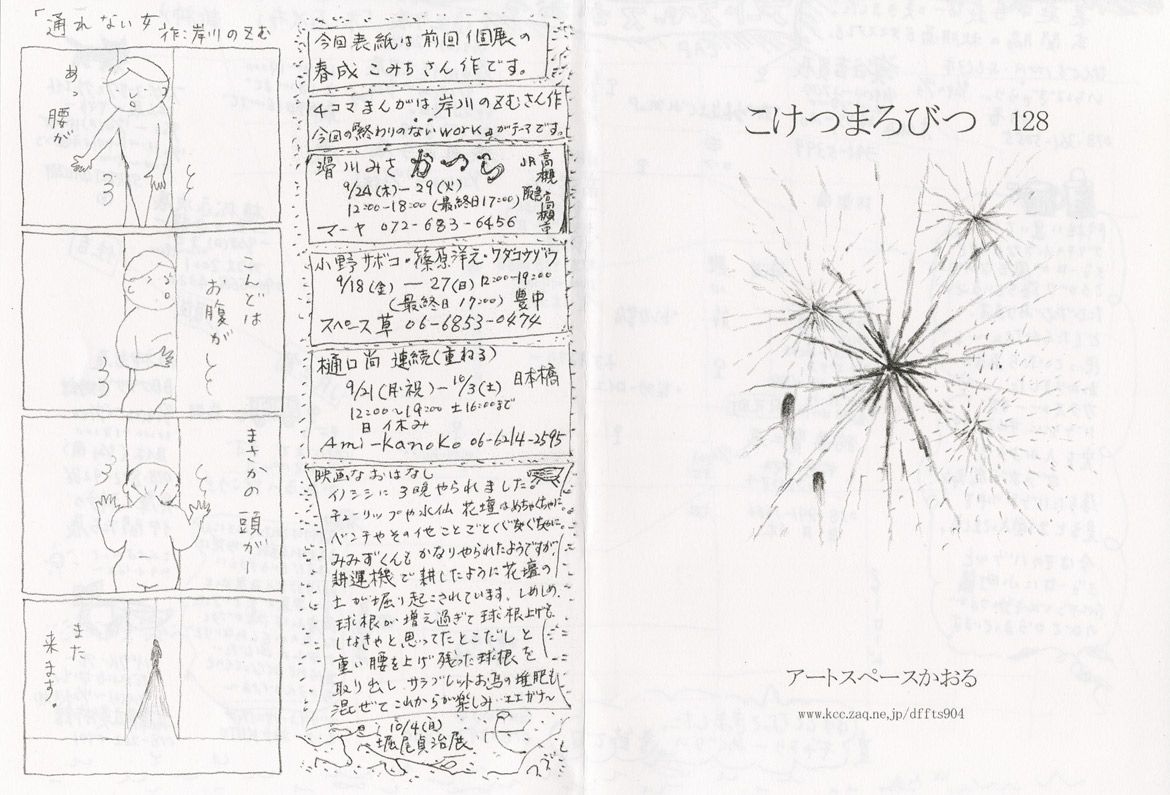 「通れない女」
作:岸川のぞむ
あ、
腰が
こんどは
お腹が
まさかの
頭が
また
来ます。
今回表紙は前回個展の
春成こみちさん作です。
4コマまんがは岸川のぞむさん作
今回の終わりのないworkがテーマです。
滑川みさ
JR高槻
9/24(木)ー29(火)
12:00-18:00(最終日17:00)
阪急高槻市
マーヤ 072-683-6456
小野サボコ・篠原洋元・ワダコウゾウ
9/18(金)ー27(日)12:00-19:00
(最終日17:00) 豊中
スペース草 06-6853-0474
樋口尚 連続(重ねる)
9/21(月・祝)ー10/3(土) 日本橋
12:00~19:00 土16:00まで
日休み
Ami-Kanoko 06-6214-2595
映画なおはなし
イノシシに3晩やられました。
チューリップや水仙 花壇はめちゃくちゃに。
ベンチやその他ことごとくぐちゃぐちゃに。
みみずくんもかなりやられたようですが、
耕運機で耕したように花壇の
土が堀り起こされています。しめしめ、
球根が増え過ぎて球根上げを
しなきゃと思ってたとこだしと
重い腰を上げ残った球根を
取り出し サラブレットお馬の堆肥も
混ぜてこれからが楽しみ…エエガナ~
10/4(日)
堀尾貞治展
こけつまろびつ 128
アートスペースかおる
www.kcc.zaq.ne.jp/dffts904